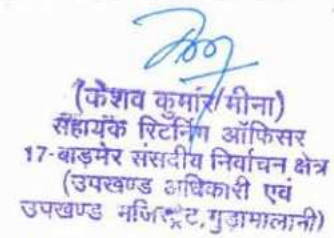 (केशव कुमार मीना)
सहायक रिटर्निंग ऑफिसर
17-बाड़मेर संसदीय निर्वाचन क्षेत्र
(उपखण्ड अधिकारी एवं
उपखण्ड मजिस्ट्रेट, गुड़ामालानी)